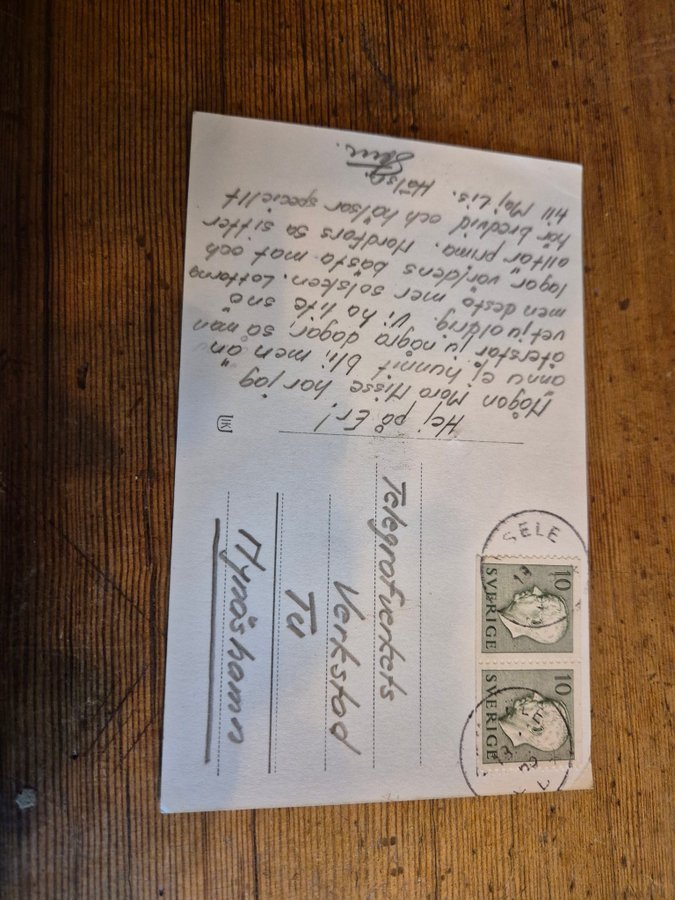 Hej på Er!
Någon Mora Nisse har jag
ännu ej hunnit bli, men än
återstår ju några dagar, så man
vet ju aldrig. Vi ha lite snö
men desto mer solsken. Lottorna
lagar världens bästa mat och
allt är prima. sitter
här bredvid och hälsar speciellt
till Maj Lis. Hälsn.
UK
Telegrafverkets
Verkstad
Nynäshamn
SELE
10
SVERIGE
10
SVERIGE